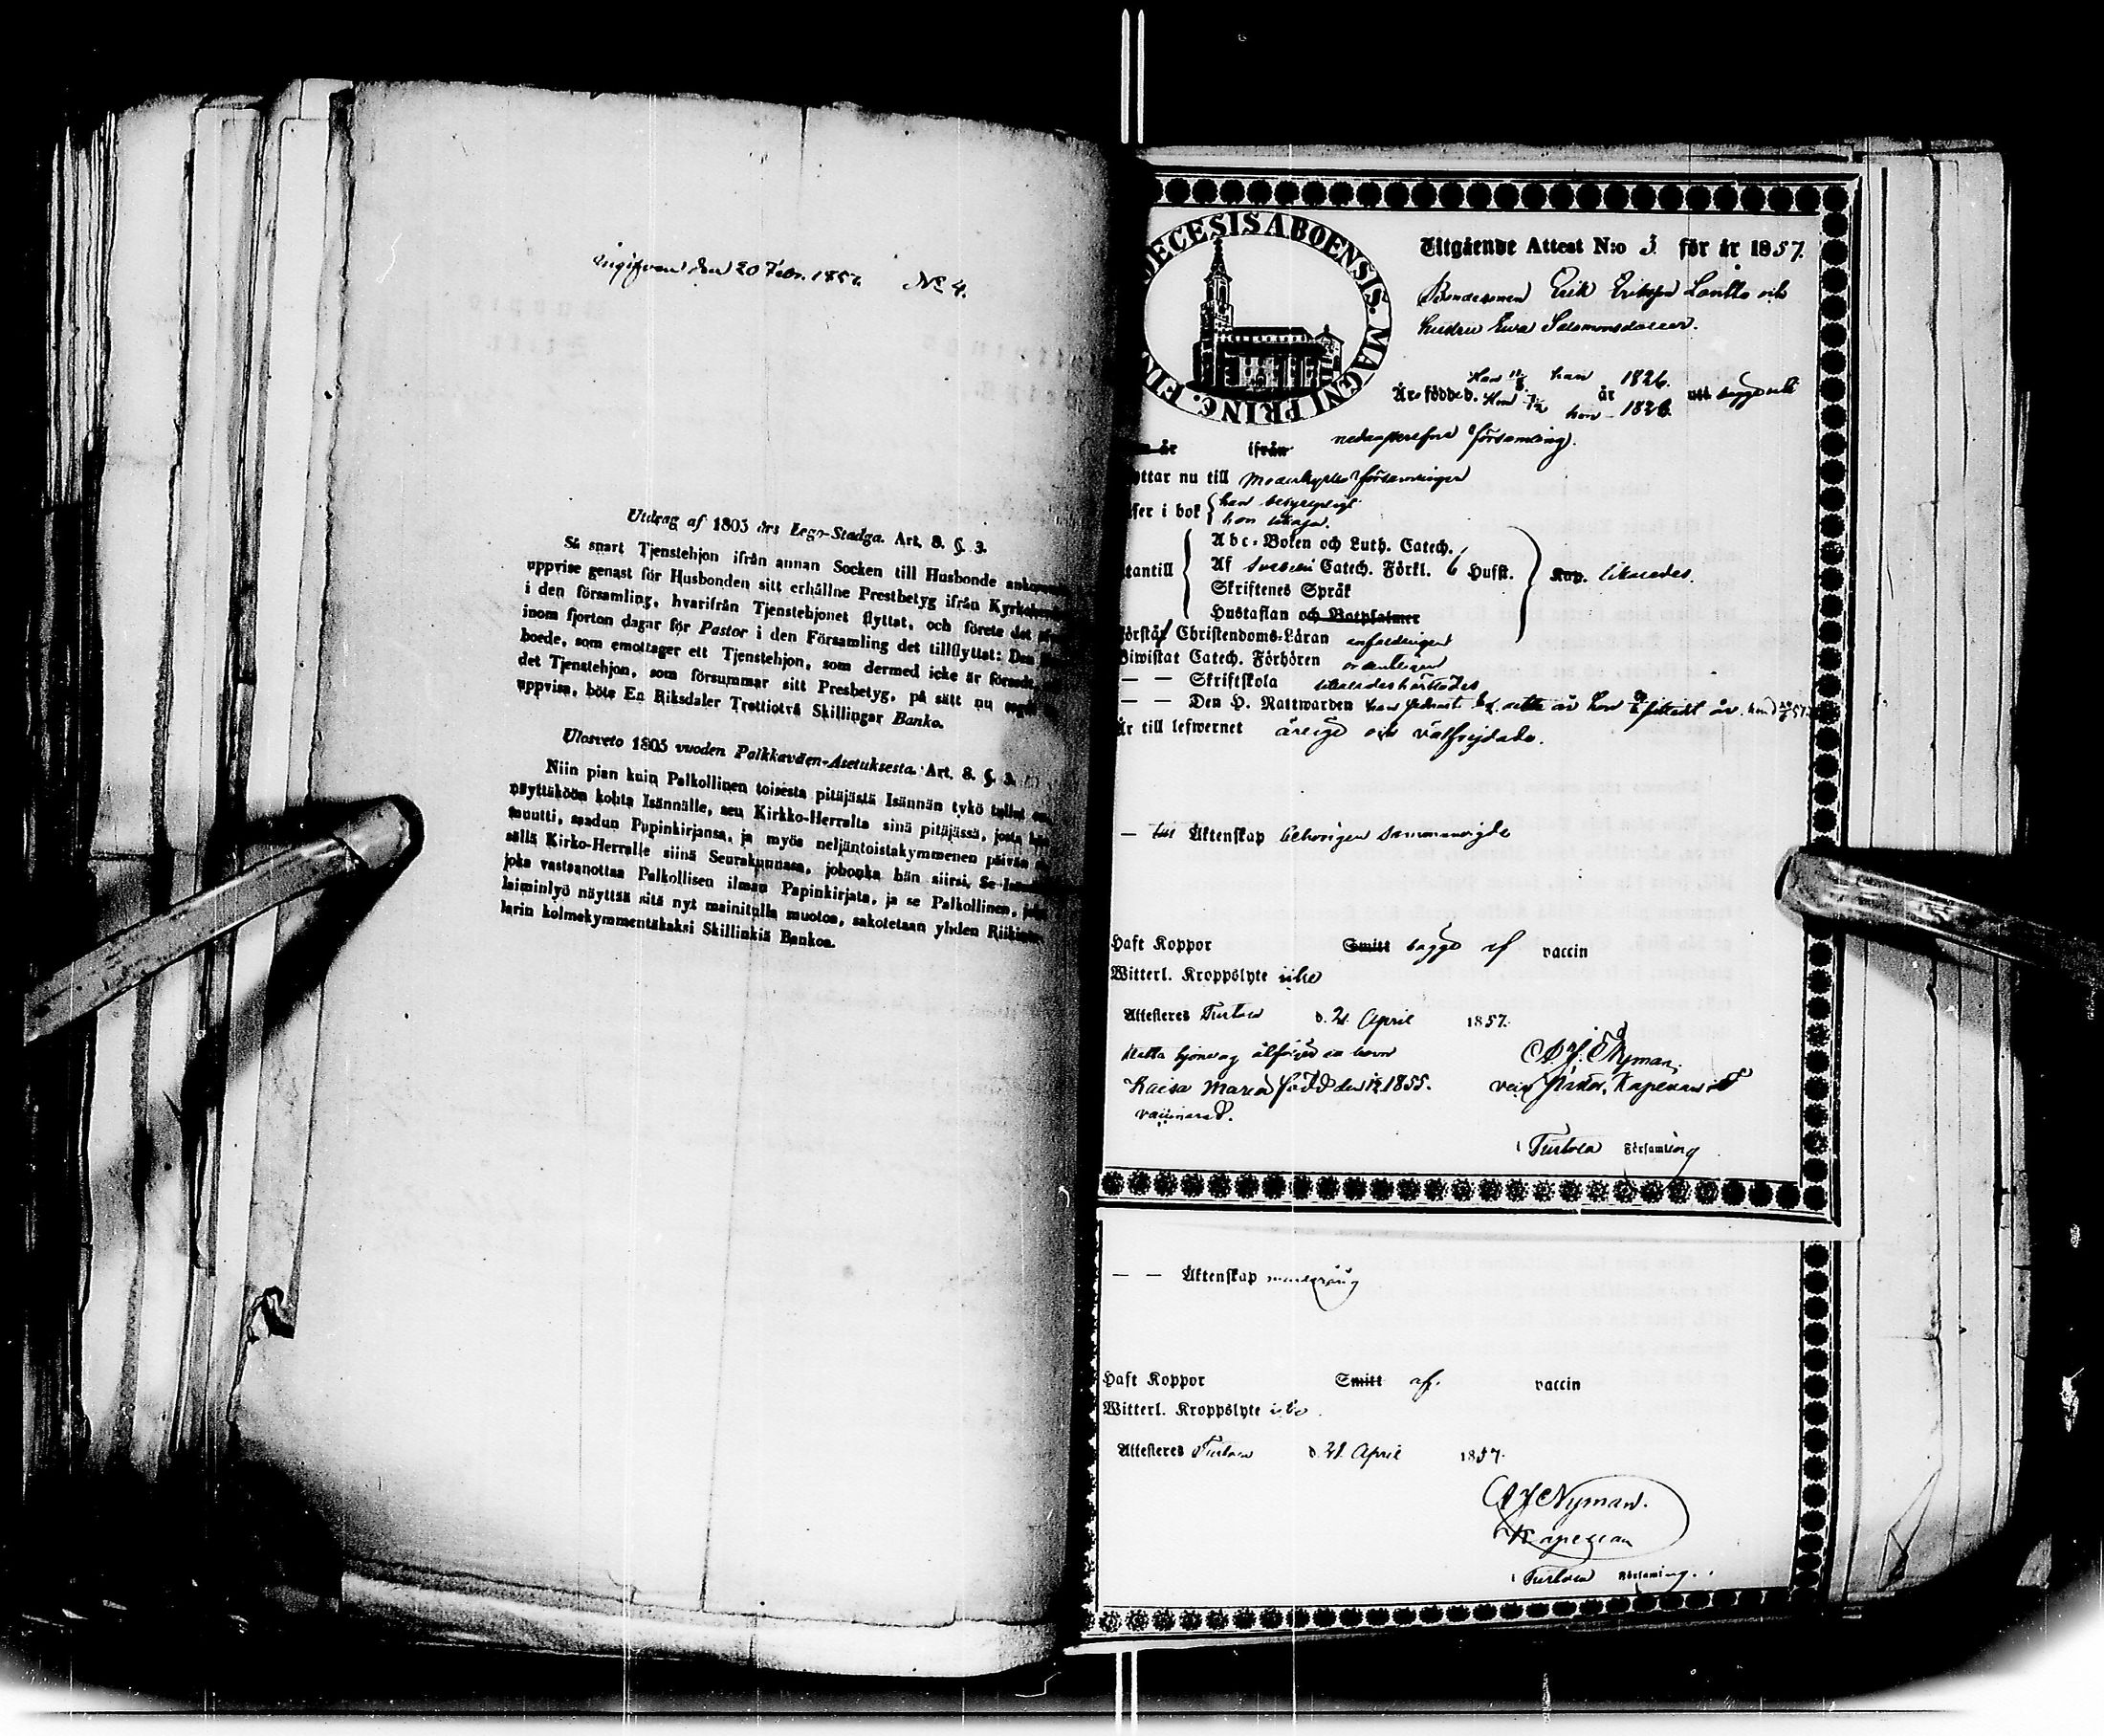 ingifven den 20 Febr. 1857. No 4.
Utdrag af 1805 års Lego-Stadga. Art. 8. §. 3.
Så snart Tjenstehjon ifrån annan Socken till Husbonde
uppvise genast för Husbonden sitt erhållne Prestbetyg ifrån
i den församling, hvarifrån Tjenstehjonet flyttat, och förete det
inom fjorton dagar för Pastor i den Församling det tillflyttat: Den
boede, som emottager ett Tjenstehjon, som dermed icke är försedt,
det Tjenstehjon, som försummar sitt Presbetyg, på sätt nu
uppvisa, böte En Riksdaler Trettiotvå Skillingar Banko.
Ulosveto 1805 vuoden Palkkaväen-Asetuksesta. Art. 8. §. 3.
Niin pian kuin Palkollinen toisesta pitäjästä Isännän tykö tullut on,
näyttäköön kohta Isännälle, sen Kirkko-Herralta siinä pitäjässä, josta hän
muutti, saadun Papinkirjansa, ja myös neljäntoistakymmenen päivän
sällä Kirko-Herralle siinä Seurakunnasa, johonka hän siirsi. Se
joka vastaanottaa Palkollisen ilman Papinkirjata, ja se Palkollinen, joka
laiminlyö näyttää sitä nyt mainitulla muotoa, sakotetaan yhden
larin kolmekymmentäkaksi Skillinkiä Bankoa.
DECESIS ABOENSIS. MAGNI PRINC. FIN
Utgående Attest N:o 3 för år 1857.
Bondesonen Erik Eriksson Lantto och
hustru Ewa Salomonsdotter.
han 1826.
Äro födde d. år hon 1826 uti
ifrån församling.
ttar nu till Moderkyrko församlingen
ser i bok { han begripligt
hon
Abc-Boken och Luth. Catech.
tantill Af Svebelii Catech. Förkl. 6 Husst. Kap. likaledes.
Skriftenes Språk
Hustaflan och Botpsalmer
Förstår Christendoms-Läran enfaldigen
Biwistat Catech. Förhören ordentligen
— — Skriftskola
— — Den H. Nattwarden
Är till lefwernet ärlige och välfrejdade.
— till Äktenskap behörigen sammanvigde
Haft Koppor Smitt bägge af vaccin
Witterl. Kroppslyte icke
Attesteres Turtola d. 21 April 1857.
Detta hjonelag åtföljes en barn A. J. Nyman.
Kaisa Maria född den 1855. Kapellan
vaccinerad.
i Turtola Församling
— — Äktenskap
Haft Koppor Smitt af. vaccin
Witterl. Kroppslyte icke.
Attesteres Turtola d. 21 April 1857.
A J Nyman.
Kapellan
i Turtola Församling.